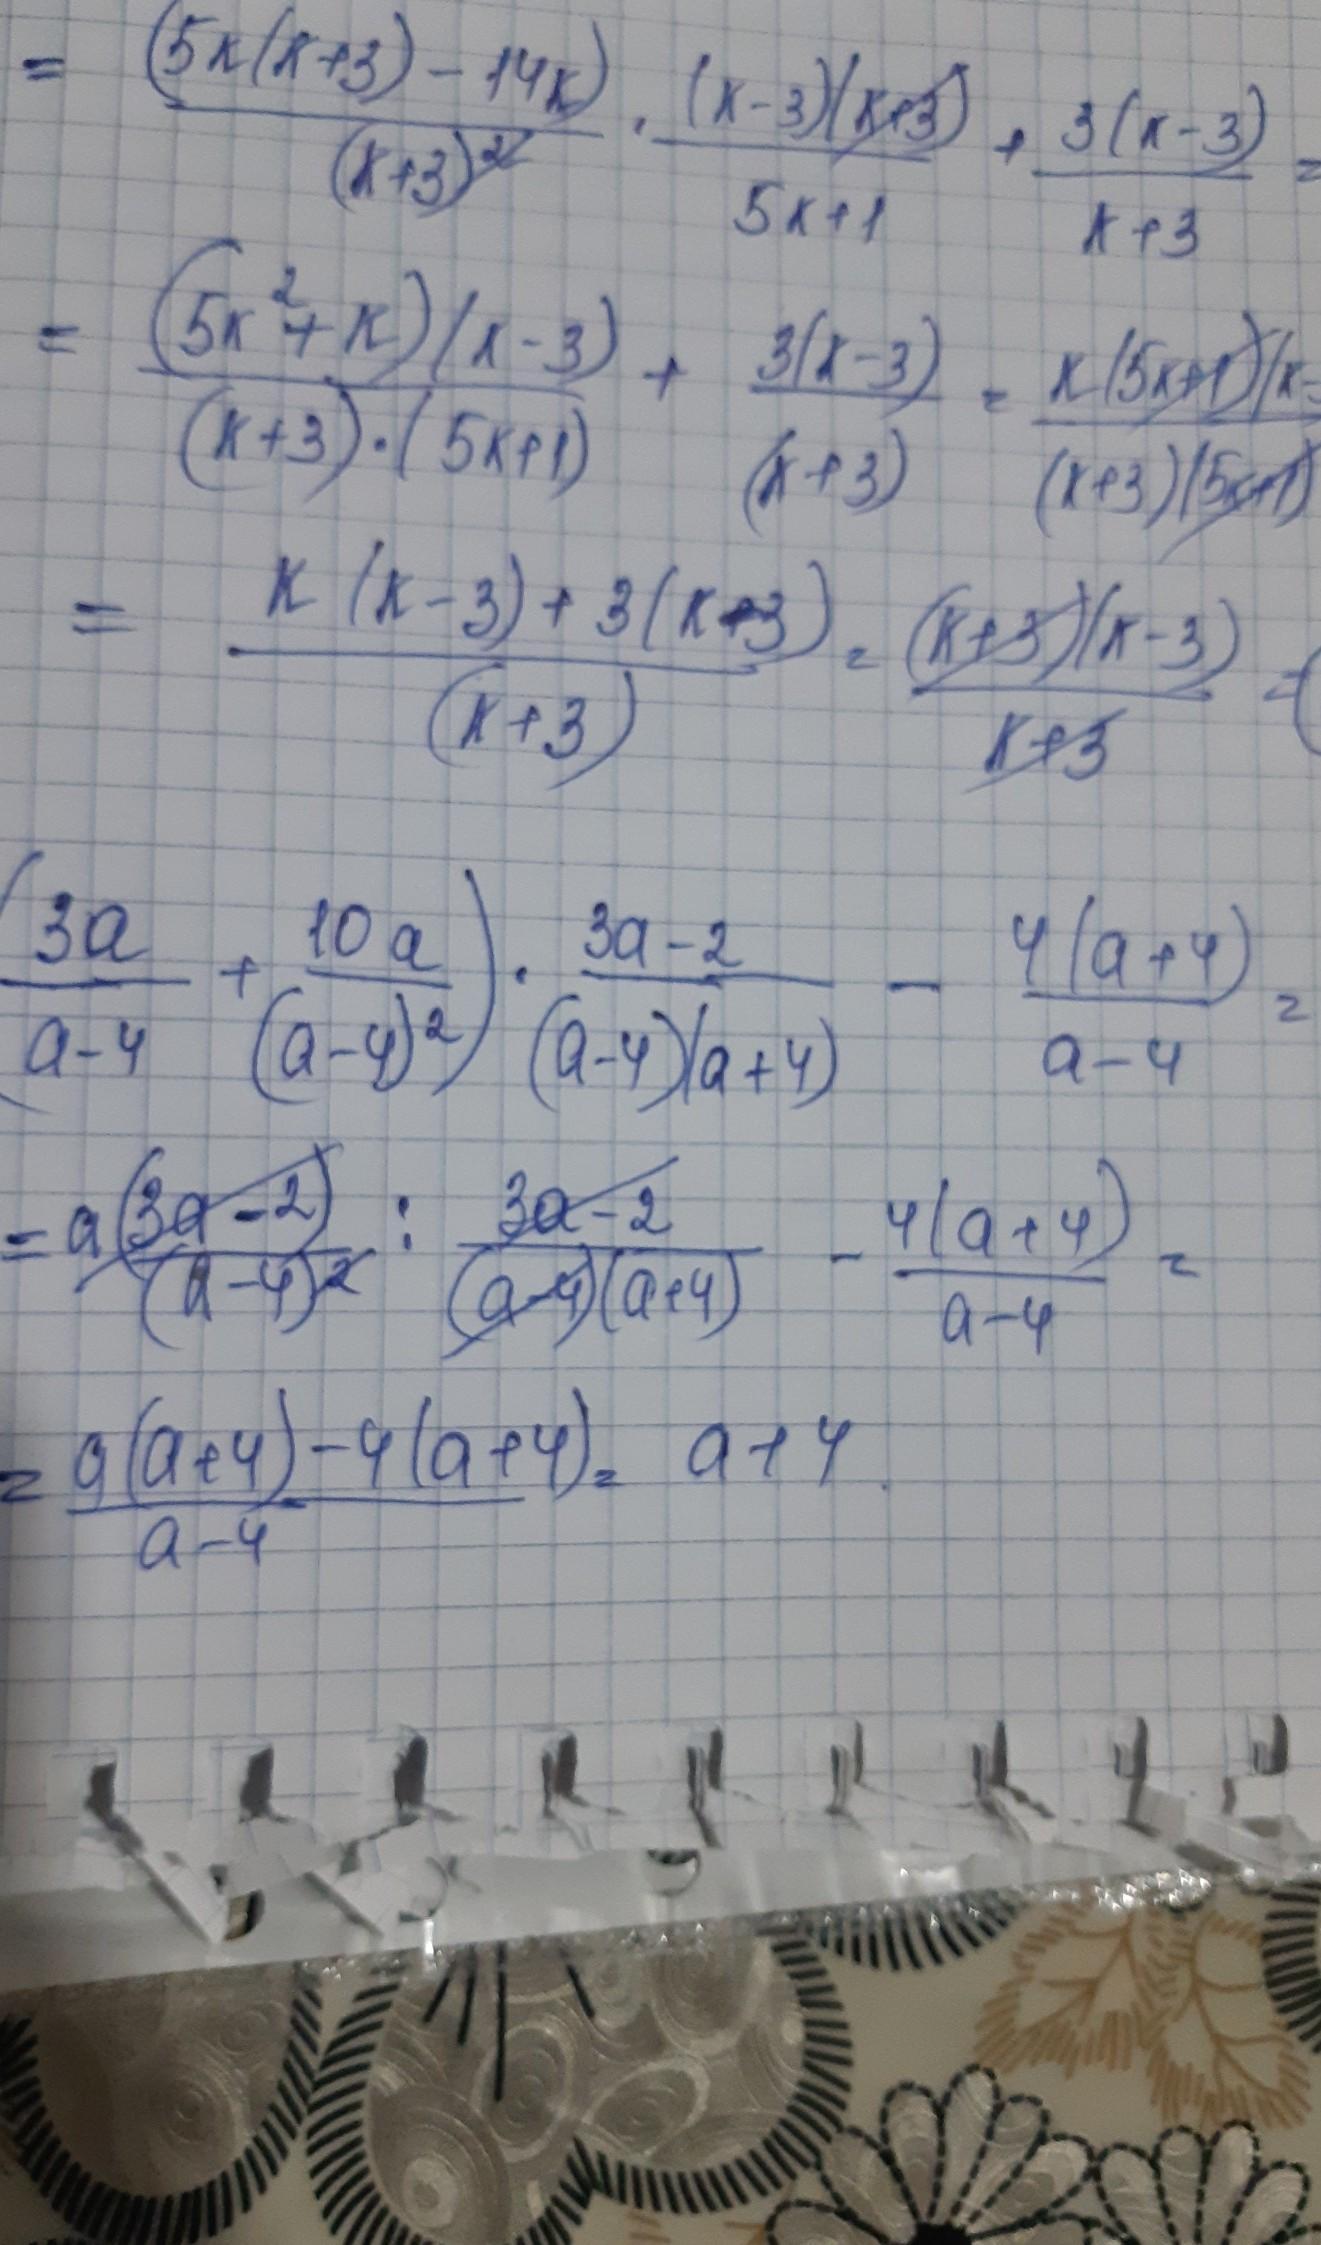 = (5x(x+3) - 14x) / (x+3)² · (x-3)(x+3) / 5x+1 + 3(x-3) / x+3 =
= (5x²+x)(x-3) / (x+3)·(5x+1) + 3(x-3) / (x+3) = x(5x+1)(x- / (x+3)(5x+1)
= x(x-3)+3(x-3) / (x+3) = (x+3)(x-3) / x+3 = (
(3a / a-4 + 10a / (a-4)²) · 3a-2 / (a-4)(a+4) - 4(a+4) / a-4 =
= a(3a-2) / (a-4)² : 3a-2 / (a-4)(a+4) - 4(a+4) / a-4 =
= a(a+4)-4(a+4) / a-4 = a+4.